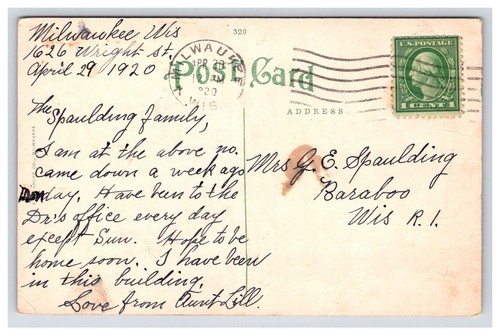 Milwaukee Wis
1626 Wright st.
April 29 1920
320
MILWAUKEE
APR 29
PM
1920
WIS
Post Card
U.S. POSTAGE
1 CENT 1
ADDRESS
The
Spaulding Family,
I am at the above no.
came down a week ago
Monday. Have been to the
Dr's office every day
except Sun. Hope to be
home soon. I have been
in this building.
Love from Aunt Lill.
Mrs G. E. Spaulding
Baraboo
Wis R. 1.